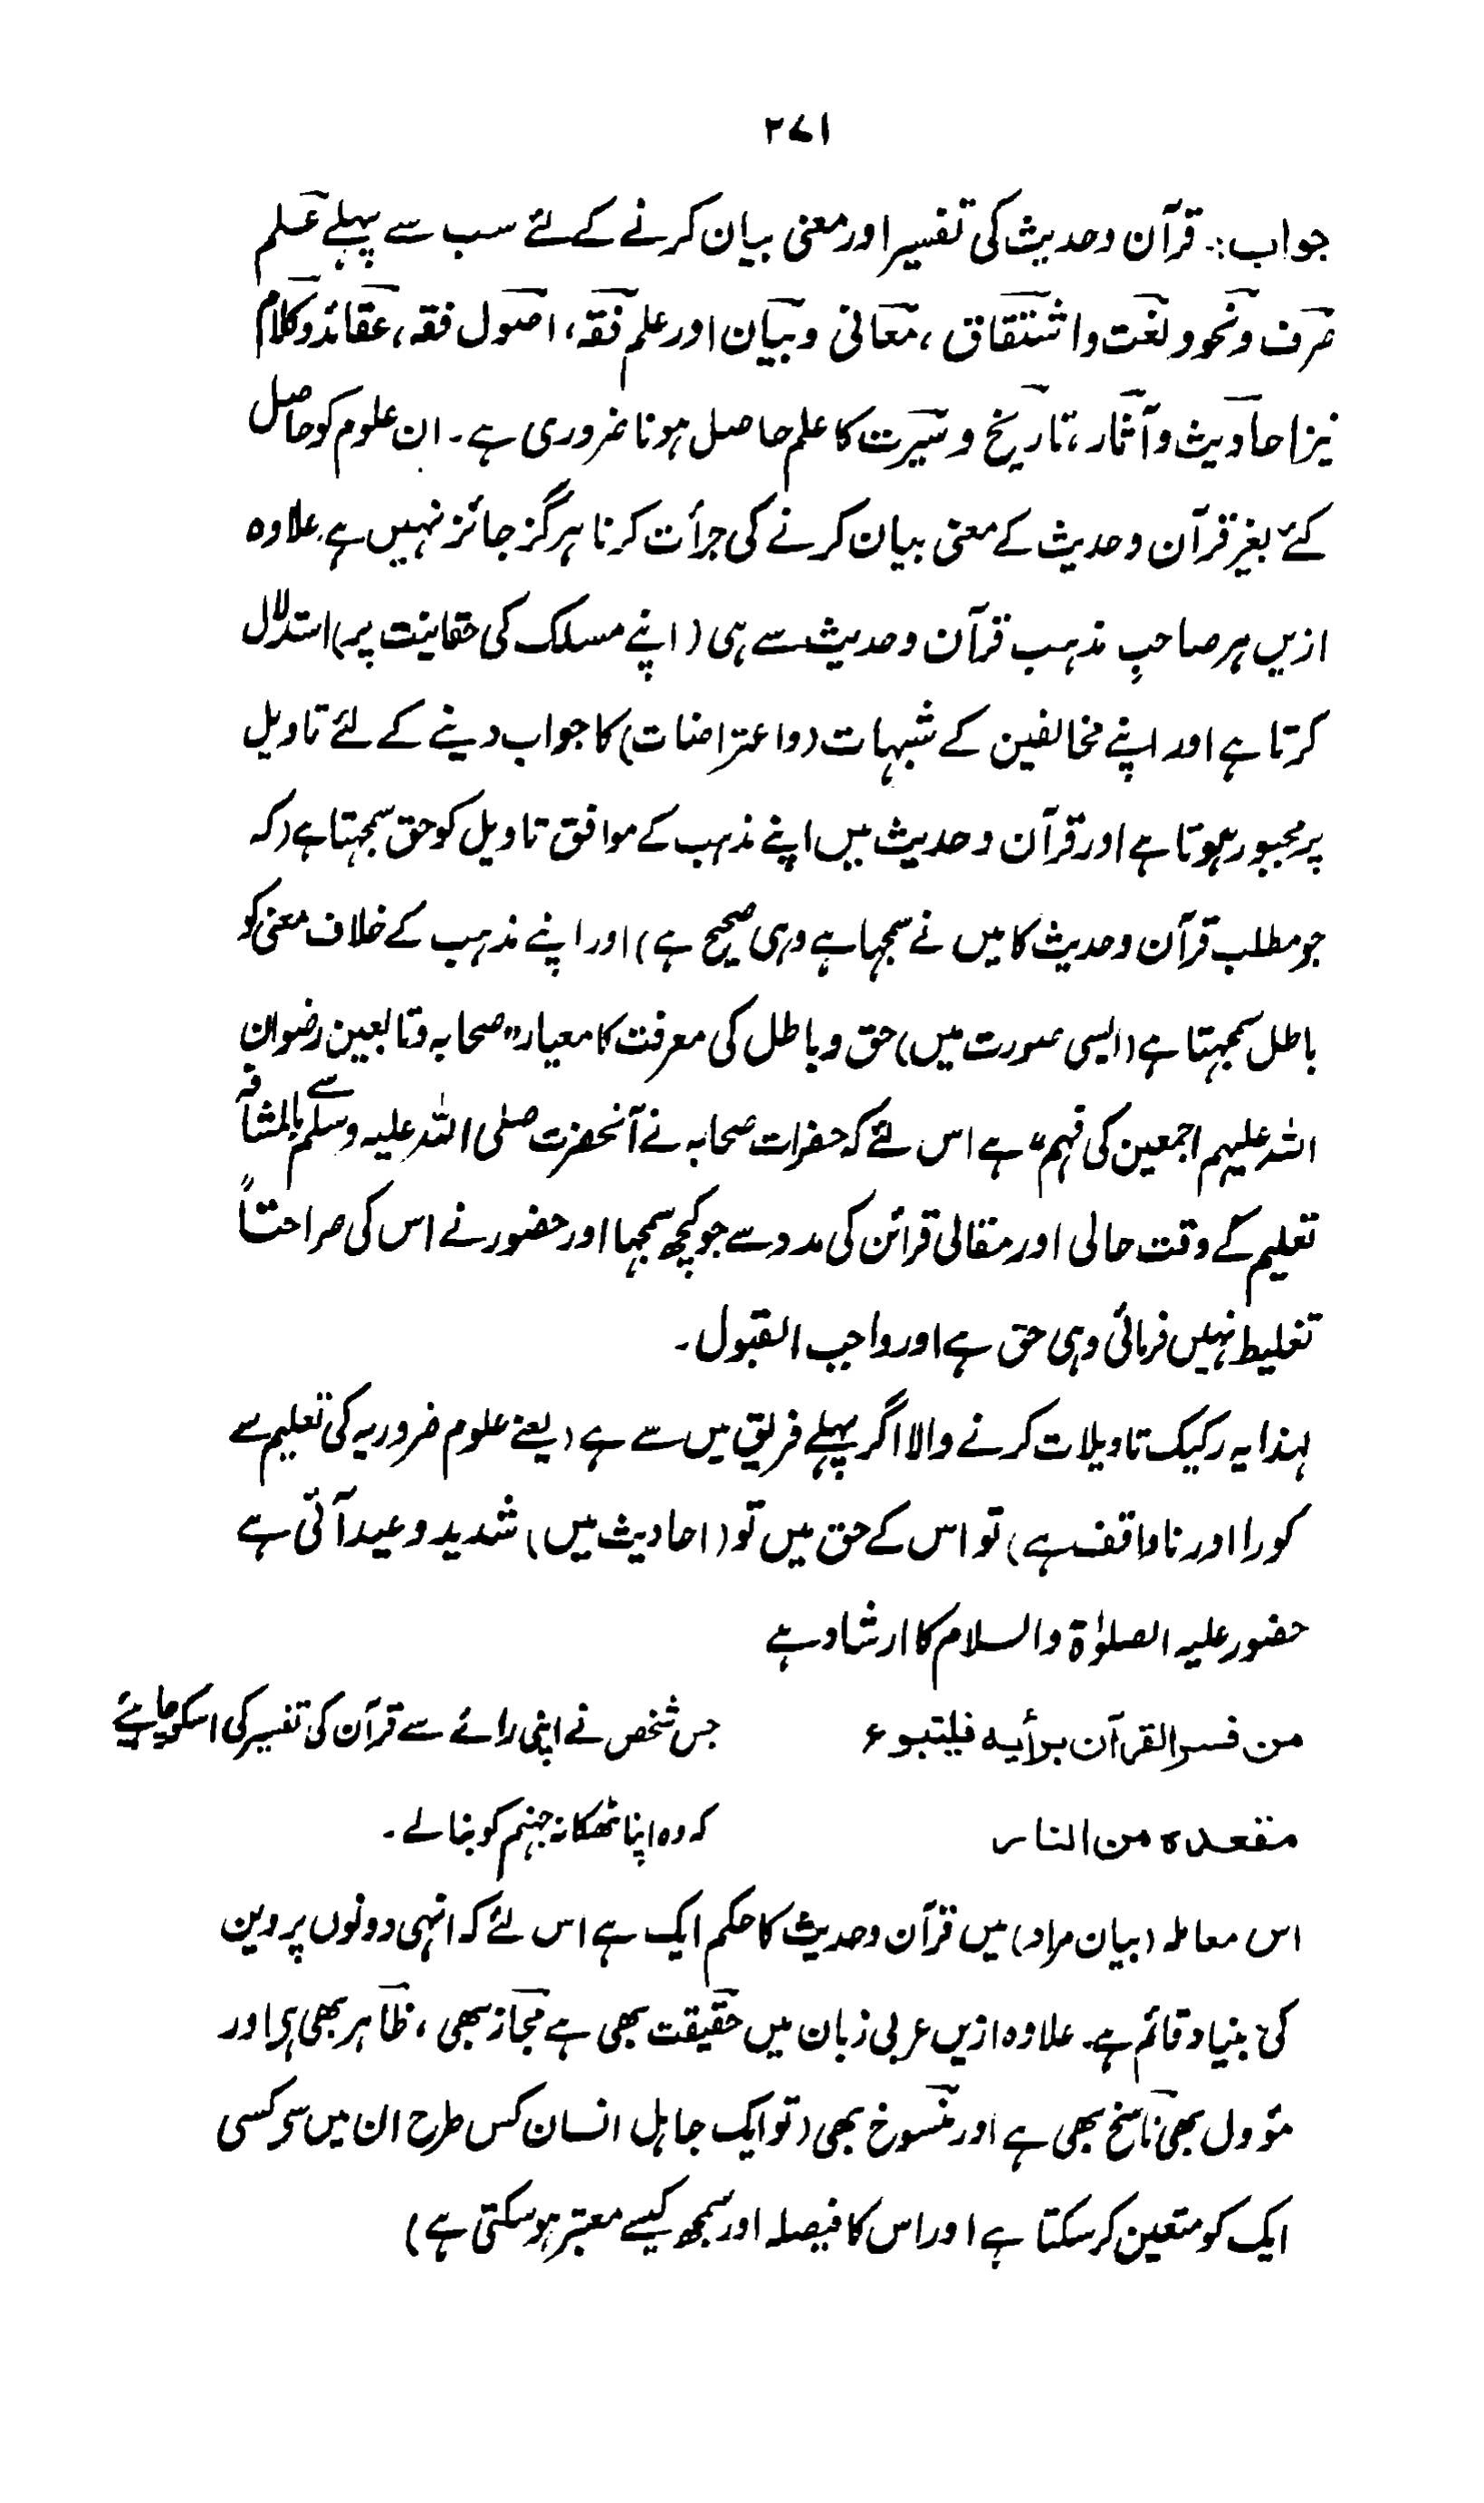 ۲۷۱
جواب:۔ قرآن وحدیث کی تفسیر اور معنی بیان کرنے کے لئے سب سے پہلے علم
صرف ونحو و لغت واشتقاق، معانی وبیان اور علم فقہ، اصول فقہ، عقائد وکلام
نیز احادیث وآثار، تاریخ وسیرت کا علم حاصل ہونا ضروری ہے۔ ان علوم کو حاصل
کئے بغیر قرآن وحدیث کے معنی بیان کرنے کی جرأت کرنا ہرگز جائز نہیں ہے، علاوہ
ازیں ہر صاحبِ مذہب قرآن وحدیث سے ہی (اپنے مسلک کی حقانیت پر) استدلال
کرتا ہے اور اپنے مخالفین کے شبہات (واعتراضات) کا جواب دینے کے لئے تاویل
پر مجبور ہوتا ہے اور قرآن وحدیث میں اپنے مذہب کے موافق تاویل کو حق سمجہتا ہے (کہ
جو مطلب قرآن وحدیث کا میں نے سمجہا ہے وہی صحیح ہے) اور اپنے مذہب کے خلاف معنی کو
باطل سمجہتا ہے (ایسی صورت میں) حق وباطل کی معرفت کا معیار ”صحابہ وتابعین رضوان
اللہ علیہم اجمعین کی فہم“ ہے اس لئے کہ حضرات صحابہ نے آنحضرت صلی اللہ علیہ وسلم سے بالمشافہ
تعلیم کے وقت حالی اور مقالی قرائن کی مدد سے جو کچھ سمجہا اور حضور نے اس کی صراحتاً
تغلیط نہیں فرمائی وہی حق ہے اور واجب القبول۔
لہذا یہ رکیک تاویلات کرنے والا اگر پہلے فریق میں سے ہے (یعنے علوم ضروریہ کی تعلیم سے
کورا اور ناواقف ہے) تو اس کے حق میں تو (احادیث میں) شدید وعید آئی ہے
حضور علیہ الصلوٰۃ والسلام کا ارشاد ہے
من فسر القرآن برأیه فلیتبوء جس شخص نے اپنی رائے سے قرآن کی تفسیر کی اسکو چاہیئے
مقعده من النار کہ وہ اپنا ٹھکانہ جہنم کو بنالے۔
اس معاملہ (بیان مراد) میں قرآن وحدیث کا حکم ایک ہے اس لئے کہ انہی دونوں پر دین
کی بنیاد قائم ہے۔ علاوہ ازیں عربی زبان میں حقیقت بھی ہے مجاز بھی، ظاہر بھی ہی اور
مؤول بھی ناسخ بھی ہے اور منسوخ بھی (تو ایک جاہل انسان کس طرح ان میں سی کسی
ایک کو متعین کرسکتا ہے اور اس کا فیصلہ اور سمجھ کیسے معتبر ہوسکتی ہے)